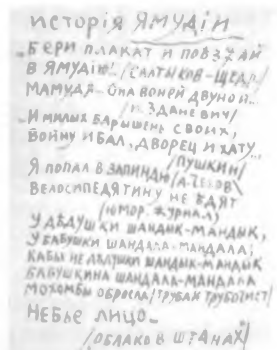 исторія ЯМУДІИ
БЕРИ ПЛАКАТ И ПОВЗДАЙ
В ЯМУДІЮ! /САЛТЫКОВ-ЩЕДР/
МАМУДЯ - ОНА ВОНЕЙ ДВУНОЙ...
/И ЗДАНЕВИЧ/
И МИЛЫХ БАРЫШЕНЬ СВОИХ,
ВОЙНУ И БАЛ, ДВОРЕЦ И ХАТУ...
/ПУШКИН/
Я ПОПАЛ В ЗАПИНДЮ /А. ЧЕХОВ\
ВЕЛОСИПЕДЯТИНУ НЕ ЕДЯТ
(ЮМОР. ЖУРНАЛ)
У ДѢДУШКИ ШАНДЫК-МАНДЫК,
У БАБУШКИ ШАНДАЛА-МАНДАЛА,
КАБЫ НЕ ДѢДУШКИ ШАНДЫК-МАНДЫК
БАБУШКИНА ШАНДАЛА-МАНДАЛА
МОХОМБЫ ОБРОСЛА /ТРУБЛИ ТРУБОТИСТ/
НЕБЬЕ ЛИЦО-
/ОБЛАКО В ШТАНАХ/